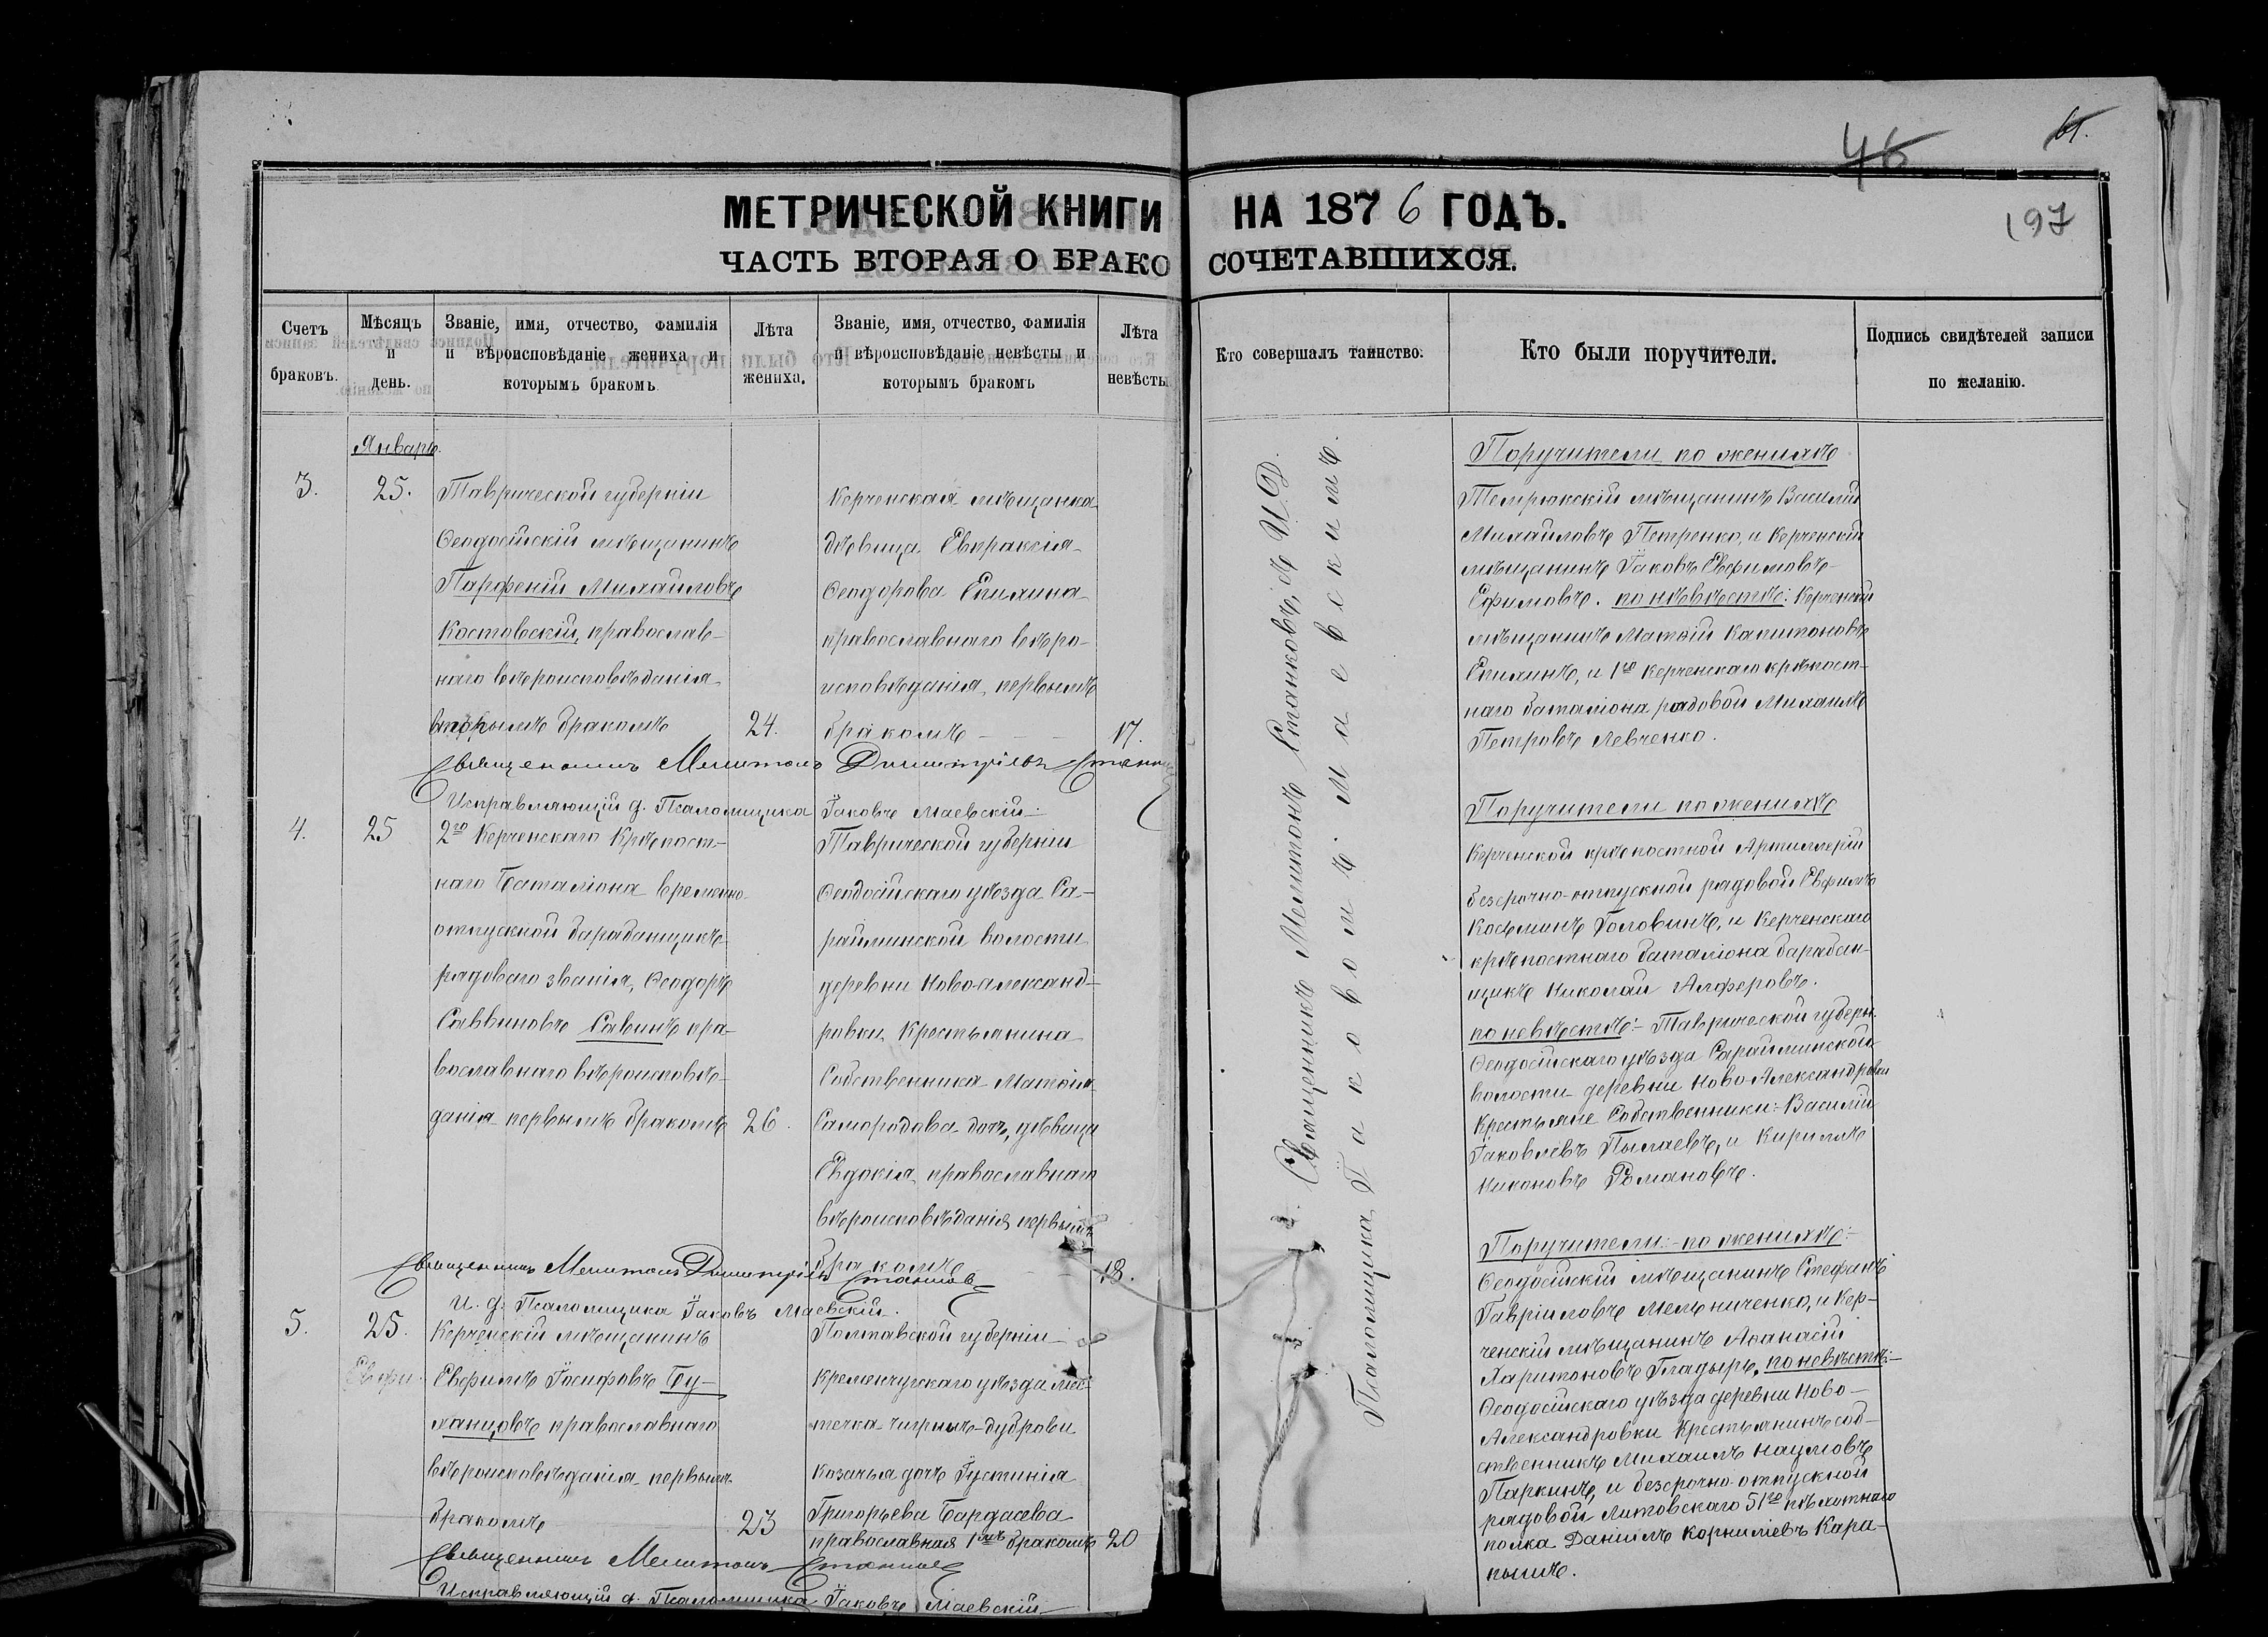 46
61.
197
МЕТРИЧЕСКОЙ КНИГИ НА 1876 ГОДЪ.
ЧАСТЬ ВТОРАЯ О БРАКОСОЧЕТАВШИХСЯ.
Счетъ браковъ.
Мѣсяцъ и день.
Званіе, имя, отчество, фамилія
и вѣроисповѣданіе жениха и
которымъ бракомъ
Лѣта жениха.
Званіе, имя, отчество, фамилія
и вѣроисповѣданіе невѣсты и
которымъ бракомъ
Лѣта невѣсты
Кто совершалъ таинство.
Кто были поручители.
Подпись свидѣтелей записи
по желанію.
Январь.
3.
25.
Таврической губерніи
Ѳеодосійскій мѣщанинъ
Парфеній Михайловъ
Костовскій, православ-
наго вѣроисповѣданія
вторымъ бракомъ
24.
Керченская мѣщанка
дѣвица Евпраксія
Ѳеодорова Епихина
православнаго вѣро-
исповѣданія, первымъ
бракомъ
17.
Священникъ Мелитонъ Димитріевъ
Исправляющій д. Псаломщика Іаковъ Маевскій
4.
25
2го Керченскаго Крѣпост-
наго Баталіона временно-
отпускной барабанщикъ
рядоваго званія, Ѳеодоръ
Саввиновъ Савинъ пра-
вославнаго вѣроисповѣ-
данія первымъ бракомъ
26.
Таврической губерніи
Ѳеодосійскаго уѣзда Са-
райминской волости
деревни Ново-александ-
ровки, Крестьянина
Собственника Матѳія
Самородова дочь, дѣвица
Евдокія, православнаго
вѣроисповѣданія первымъ
бракомъ
18.
Священникъ Мелитонъ Димитріевъ Станковъ
И. д. Псаломщика Іаковъ Маевскій.
5.
25.
Керченскій мѣщанинъ
Евфимъ Іосифовъ Бу-
ханцовъ православнаго
вѣроисповѣданія первымъ
бракомъ
23
Полтавской губерніи
Кременчугскаго уѣзда мѣс-
течка Чигринъ-дубровы
козачья дочь Іустинія
Григорьева Бардаева
православная 1мъ бракомъ
20
Священникъ Мелитонъ Станковъ
Исправляющій д. Псаломщика Іаковъ Маевскій
Священникъ Мелитонъ Станковъ, съ И. Д.
Псаломщика Іаковомъ Маевскимъ.
Поручители по женихѣ
Темрюкскій мѣщанинъ Василій
Михайловъ Петренко, и Керченскій
мѣщанинъ Іаковъ Евфимовъ
Ефимовъ. по невѣстѣ: Керченскій
мѣщанинъ Матѳій Капитоновъ
Епихинъ, и 1го Керченскаго крѣпост-
наго баталіона рядовой Михаилъ
Петровъ Левченко.
Поручители по женихѣ
Керченской крѣпостной Артиллеріи
безсрочно-отпускной рядовой Евфимъ
Косьминъ Головинъ, и Керченскаго
крѣпостнаго баталіона барабан-
щикъ Николай Алферовъ.
по невѣстѣ: Таврической губерн.
Ѳеодосійскаго уѣзда Сарайминской
волости деревни Ново-Александровки
Крестьяне Собственники: Василій
Іаковлевъ Пылаевъ, и Кириллъ
Никоновъ Романовъ.
Поручители по женихѣ:
Ѳеодосійскій мѣщанинъ Стефанъ
Гавріиловъ Мельниченко, и Кер-
ченскій мѣщанинъ Аѳанасій
Харитоновъ Гладырь, по невѣстѣ:
Ѳеодосійскаго уѣзда деревни Ново-
Александровки Крестьянинъ соб-
ственникъ Михаилъ Наумовъ
Паркинъ, и безсрочно-отпускной
рядовой Литовскаго 51го пѣхотнаго
полка Даніилъ Корниліевъ Кара-